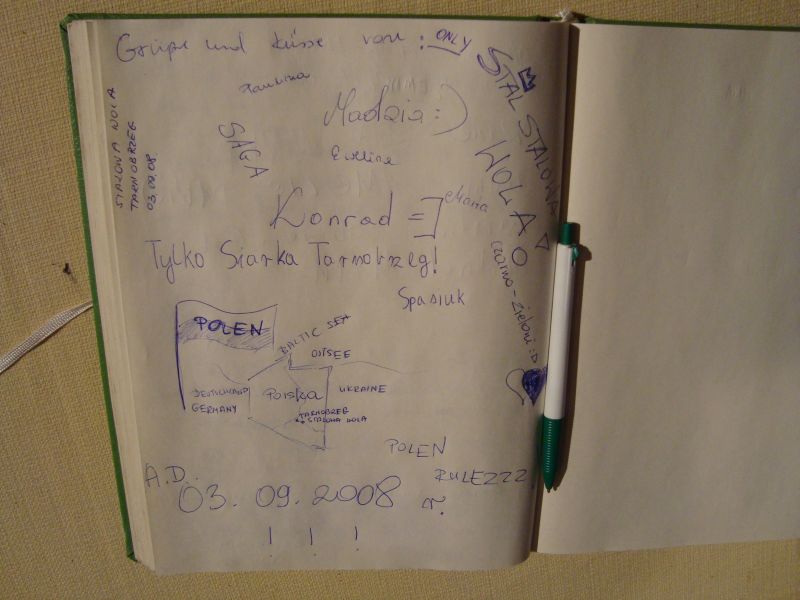 Grüße und Küsse von : ONLY
Paulina
Madzia :)
STALOWA WOLA
TARNOBRZEG
03.09.08.
SAGA
Ewelina
STAL STALOWA
WOLA
Konrad =]
Maria
Tylko Siarka Tarnobrzeg!
czarno-zieloni :D
Spasiuk
POLEN
BALTIC SEA
OSTSEE
DEUTSCHLAND
GERMANY
Polska
UKRAINE
TARNOBRZEG
STALOWA WOLA
POLEN
RULEZZZ
A.D.
03. 09. 2008 r.
! ! !